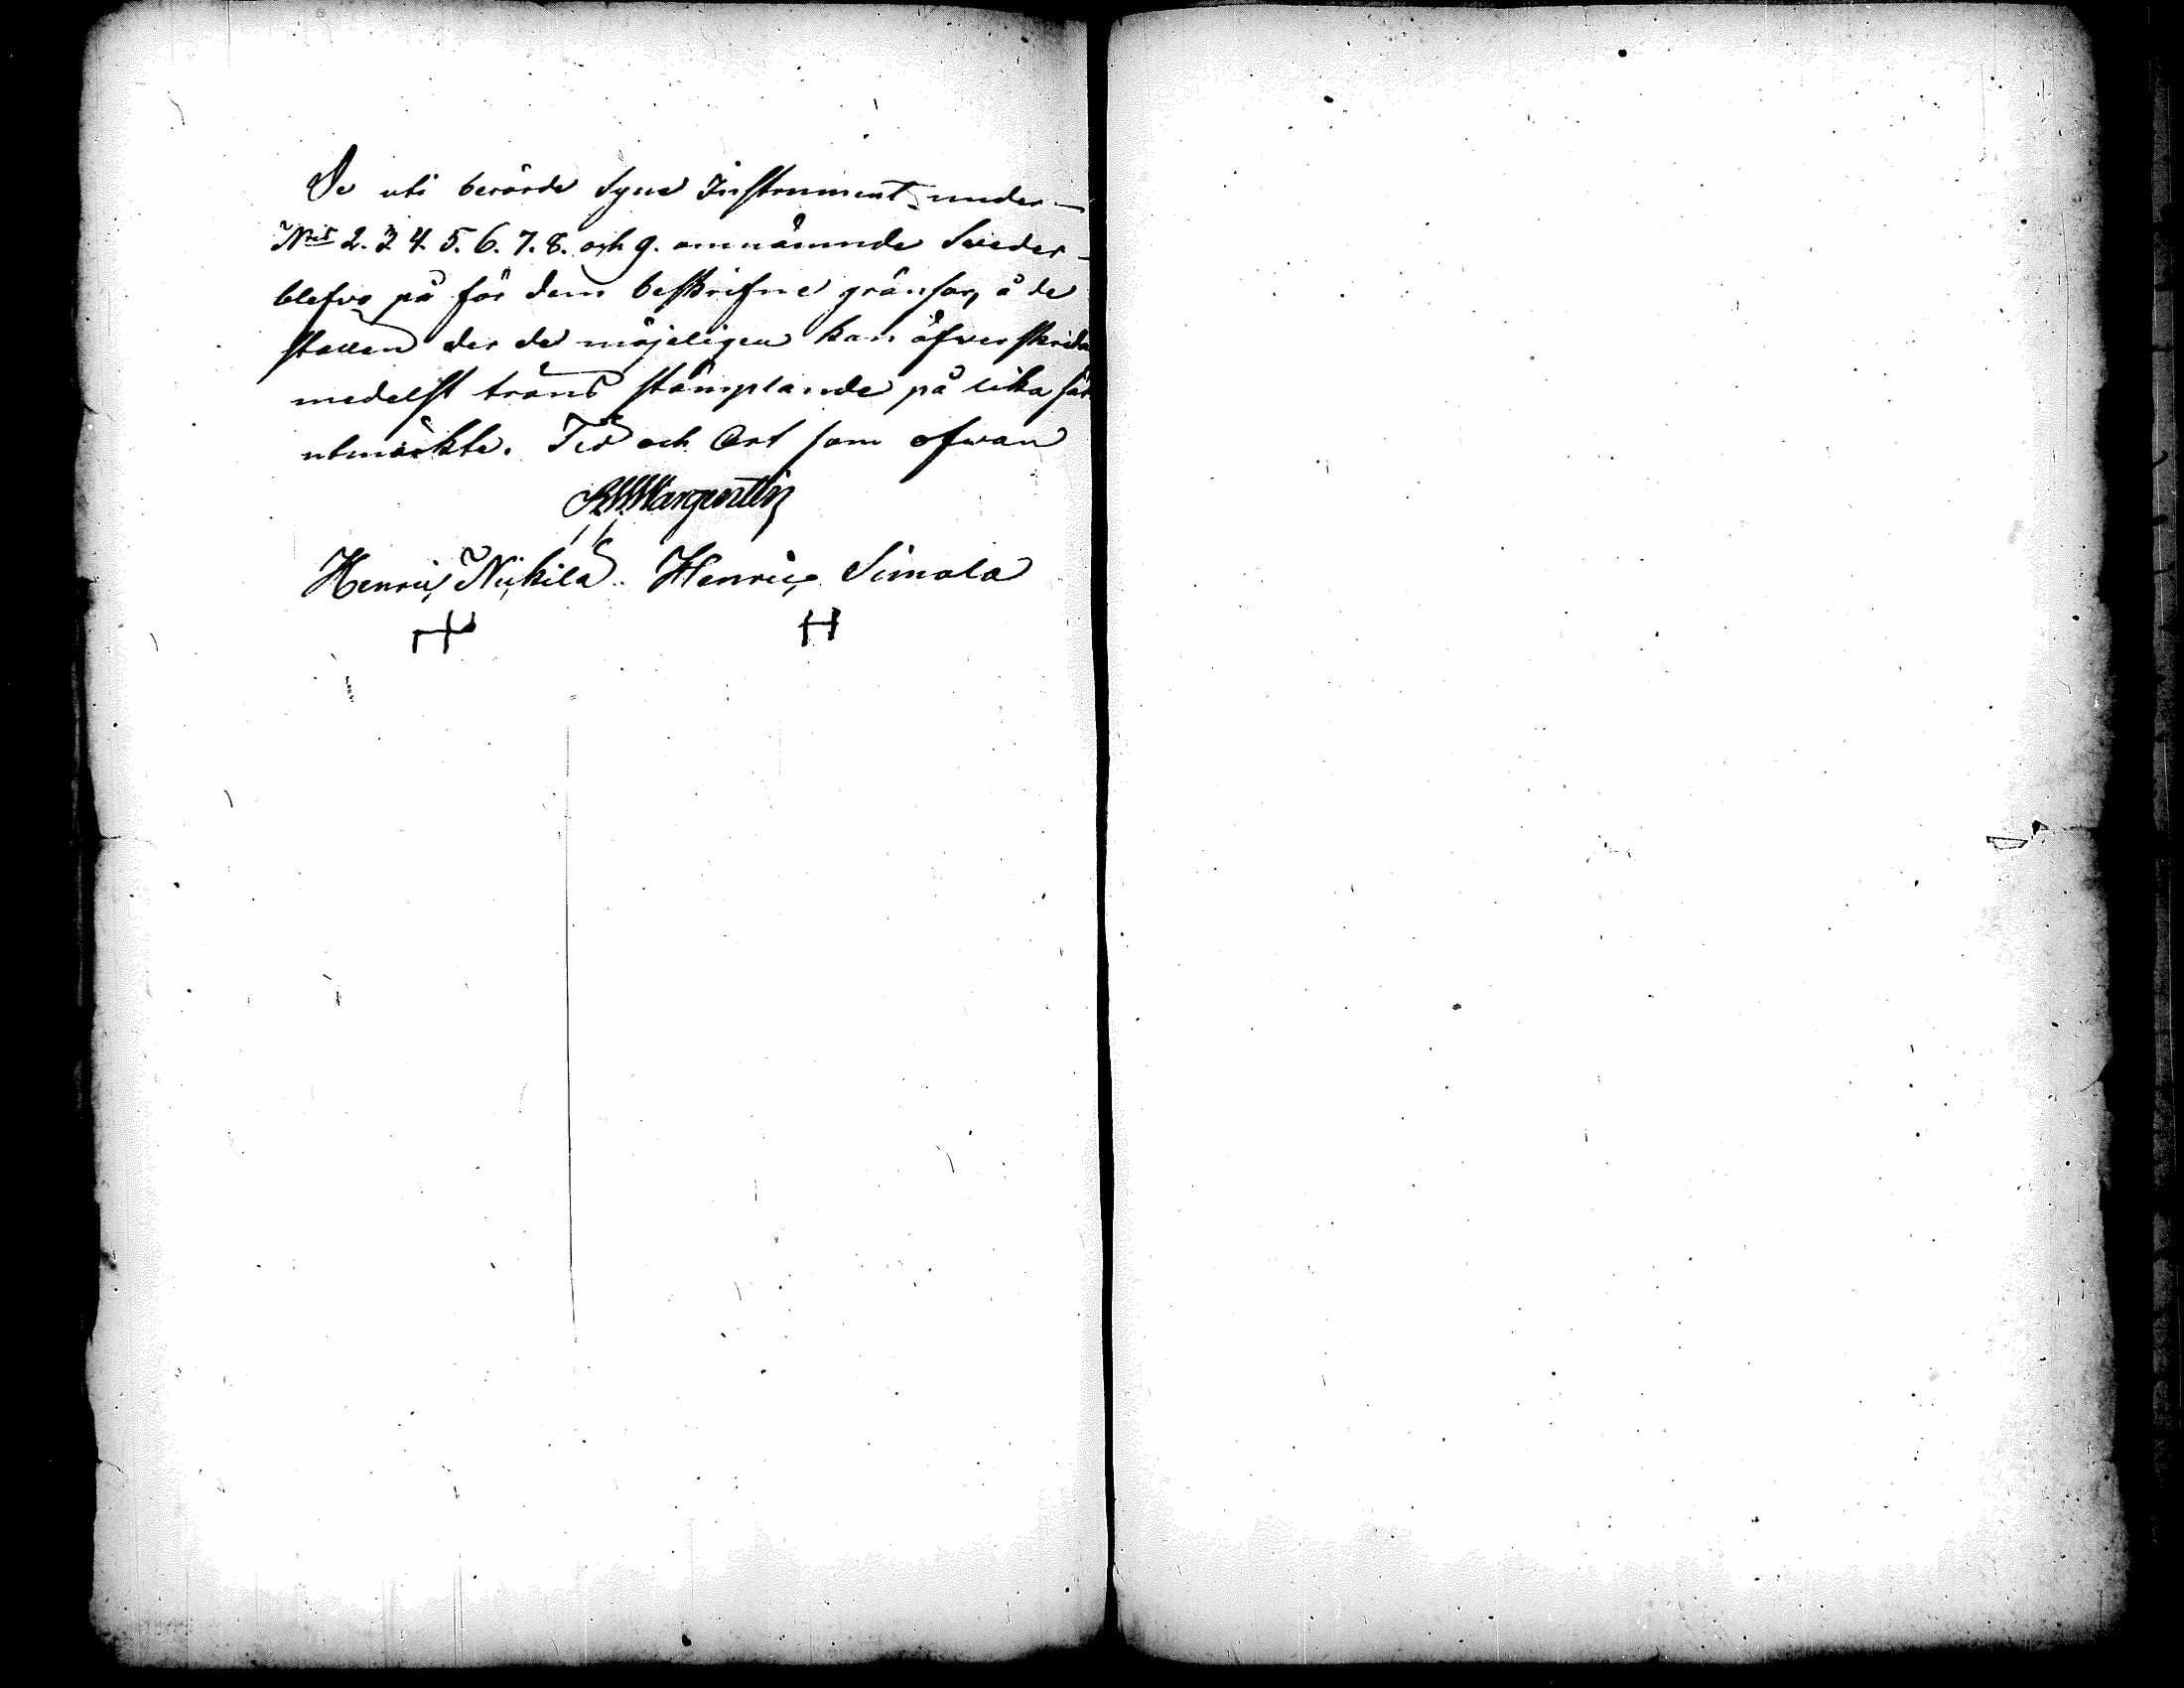 De uti berörde Syne Instrument under
Nris 2. 3 4. 5. 6. 7. 8. och 9. omnämnde Sveder
blefvo på för dem beskrifne gränsor, å de
ställen der de möjeligen kan öfverskrida
medelst träns stämplande på lika sät
utmärkte. Tid och Ort som ofvan
Wargentin
Henric Niskila Henric Simola
H